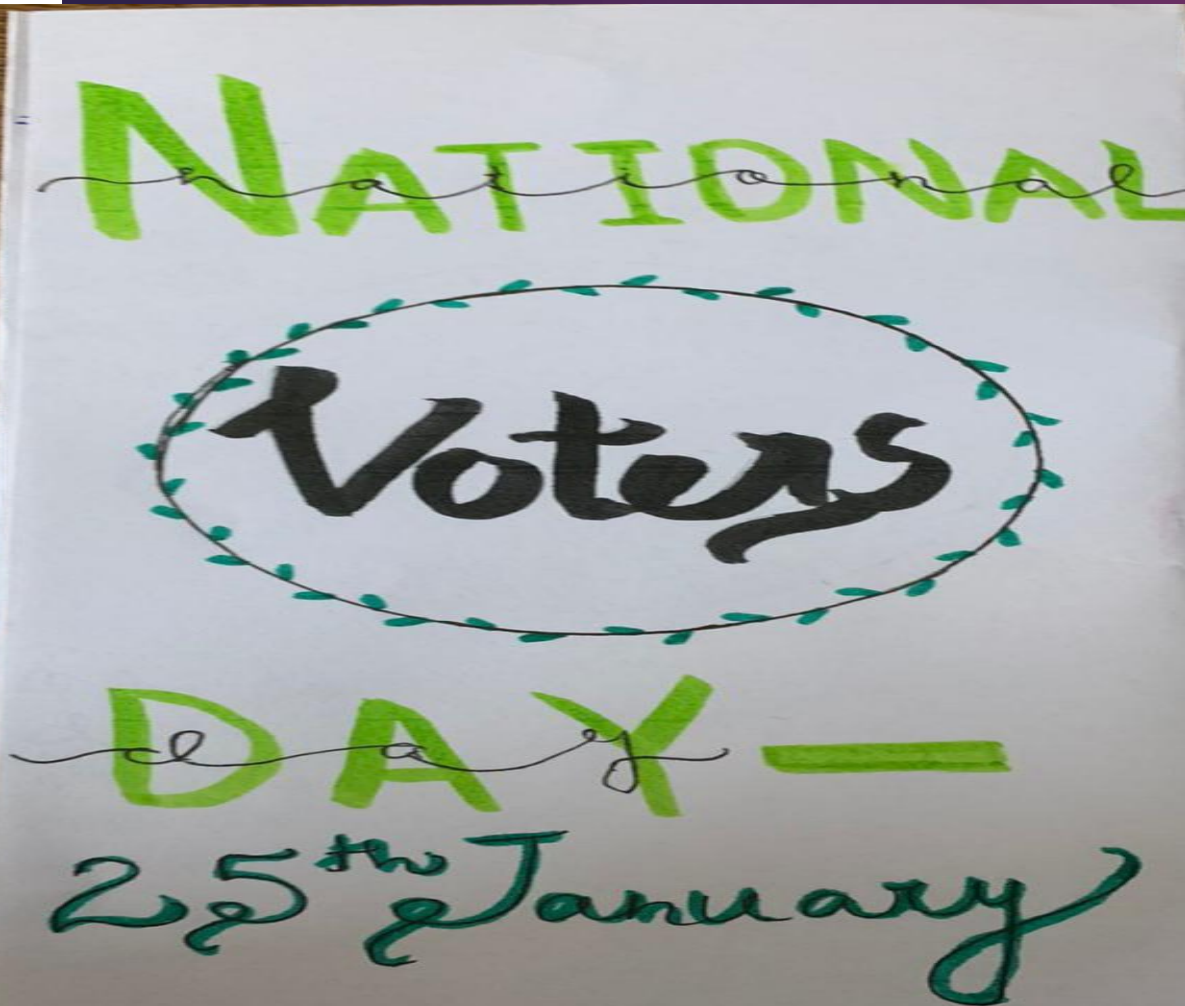 NATIONAL
national
Voters
DAY —
day
25th January